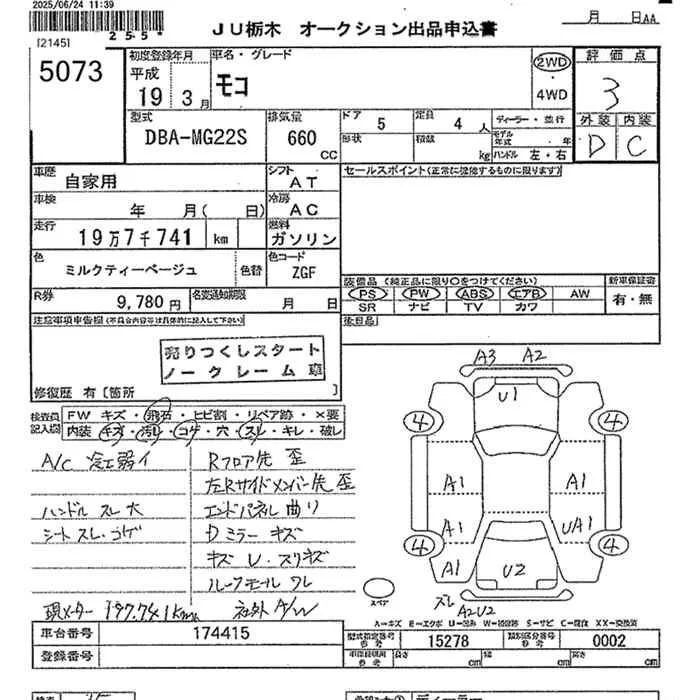 2025/06/24 11:39
月 日AA
255*
[2145]
JU栃木 オークション出品申込書
5073
初度登録年月
平成
19 3月
車名・グレード
モコ
2WD
4WD
評価点
3
外装 内装
D C
型式
DBA-MG22S
排気量
660
CC
ドア 5
定員 4 人
ディーラー・並行
形状
積載 kg
モデル年式 ・ 年
ハンドル 左・右
車歴
自家用
シフト
AT
セールスポイント(正常に機能するものに限ります)
車検
年 月( 日)
冷房
AC
走行
19万7千741 km
燃料
ガソリン
色
ミルクティーベージュ
色替
色コード
ZGF
装備品 (純正品に限り○をつけてください)
新車保証書
PS PW ABS エアB AW
SR ナビ TV カワ
有・無
R券
9,780円
名変通知期限
月 日
後日品
注意事項申告欄(不具合内容等は具体的に記入して下さい)
売りつくしスタート
ノークレーム車
修復歴 有[箇所 ]
検査員記入欄
FW キズ・飛石・ヒビ割・リペア跡・×要
内装 キズ・汚レ・コゲ・穴・スレ・キレ・破レ
A/C 冷エ弱イ
Rフロア先 歪
左Rサイドメンバー先 歪
ハンドル スレ大
エンドパネル 曲り
シート スレ・コゲ
Dミラー キズ
キズ U・スリキズ
ルーフモール ワレ
現メーター 197.741km
社外 A/W
A3 A2
U1
4 4
A1 A1
A1 UA1
4 4
A1 U2
スペア
ズレ
A2U2
A=キズ E=エクボ U=凹み W=補修跡 S=サビ C=腐食 XX=交換済
車台番号
174415
型式指定番号
参考
15278
類別区分番号
参考
0002
登録番号
車庫証明用
参考
長さ cm
幅 cm
高さ cm